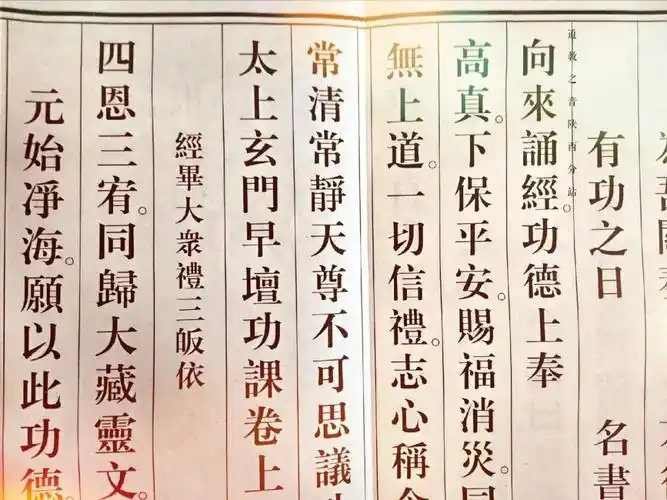 有功之日
名書
道教之音陕西分站
向來誦經。功德上奉
高真。下保平安。賜福消災。同
無上道。一切信禮。志心稱念
常清常靜天尊不可思議功
太上玄門早壇功課卷上
經畢大衆禮三皈依
四恩三宥。同歸大藏靈文。
元始凈海。願以此功德。